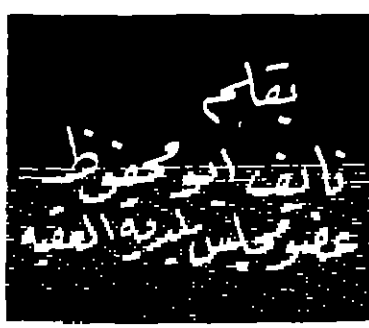 بقلم
نايف ابو محفوظ
عضو مجلس بلدية العقبه